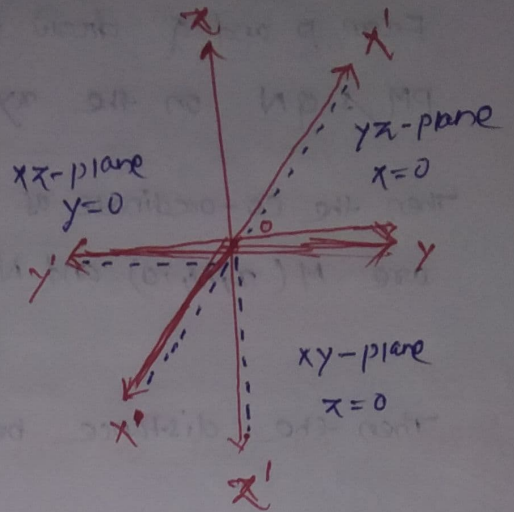 z
X'
yz-plane
x=0
xz-plane
y=0
o
Y'
Y
xy-plane
z=0
X
z'